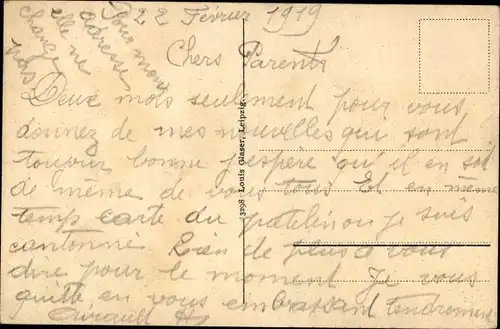 22 Février 1919
Pour mon
adresse
elle ne
change
pas
Chers Parents
Deux mots seulement pour vous
donnez de mes nouvelles qui sont
toujour bonne j'espère qu'il en soit
de même de vous tous Et en même
temp carte du patelin ou je suis
cantonné Rien de plus a vous
dire pour le moment Je vous
quitte en vous embrassant tendrement
3198 Louis Glaser, Leipzig.